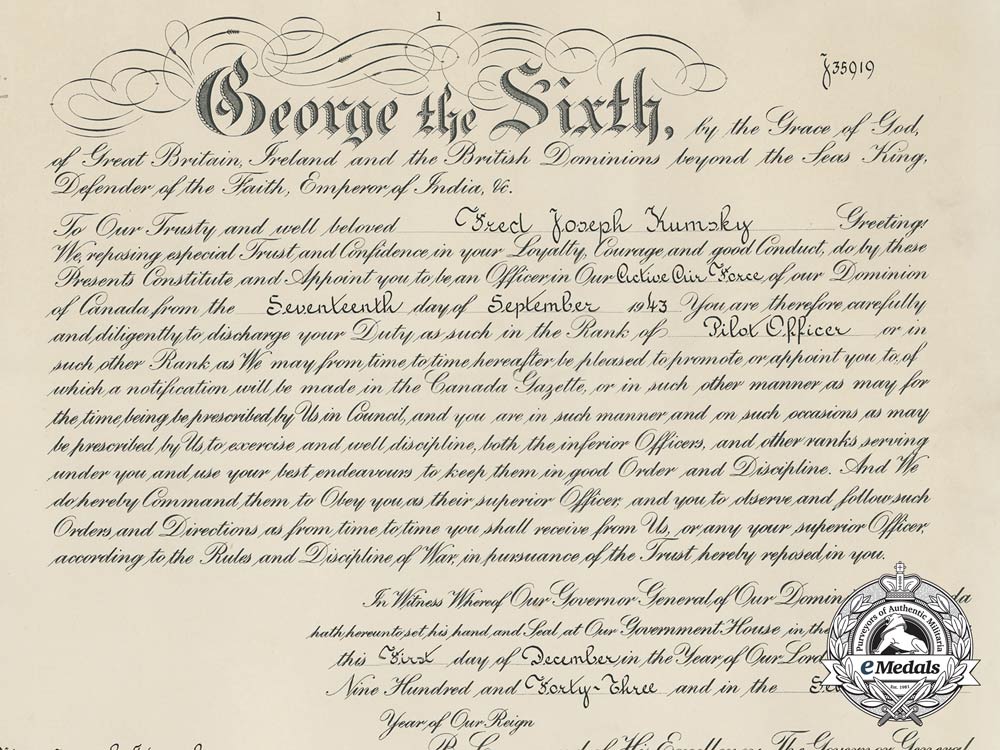 1
J35919
George the Sixth, by the Grace of God,
of Great Britain, Ireland and the British Dominions beyond the Seas King,
Defender of the Faith, Emperor of India, &c.
To Our Trusty and well beloved Fred Joseph Kumsky Greeting:
We, reposing especial Trust and Confidence in your Loyalty, Courage and good Conduct, do by these
Presents Constitute and Appoint you to be an Officer in Our Active Air Force of our Dominion
of Canada from the Seventeenth day of September 1943 You are therefore carefully
and diligently to discharge your Duty as such in the Rank of Pilot Officer or in
such other Rank as We may from time to time hereafter be pleased to promote or appoint you to, of
which a notification will be made in the Canada Gazette, or in such other manner as may for
the time being be prescribed by Us in Council, and you are in such manner and on such occasions as may
be prescribed by Us to exercise and well discipline, both the inferior Officers, and other ranks serving
under you and use your best endeavours to keep them in good Order and Discipline. And We
do hereby Command them to Obey you as their superior Officer, and you to observe and follow such
Orders and Directions as from time to time you shall receive from Us, or any your superior Officer,
according to the Rules and Discipline of War, in pursuance of the Trust hereby reposed in you.
In Witness Whereof Our Governor General of Our Domin da
hath hereunto set his hand and Seal at Our Government House in the
this First day of December in the Year of Our Lord
Nine Hundred and Forty-Three and in the
Year of Our Reign
of His Excellency The Governor General
Purveyors of Authentic Militaria
eMedals
Est. 1981